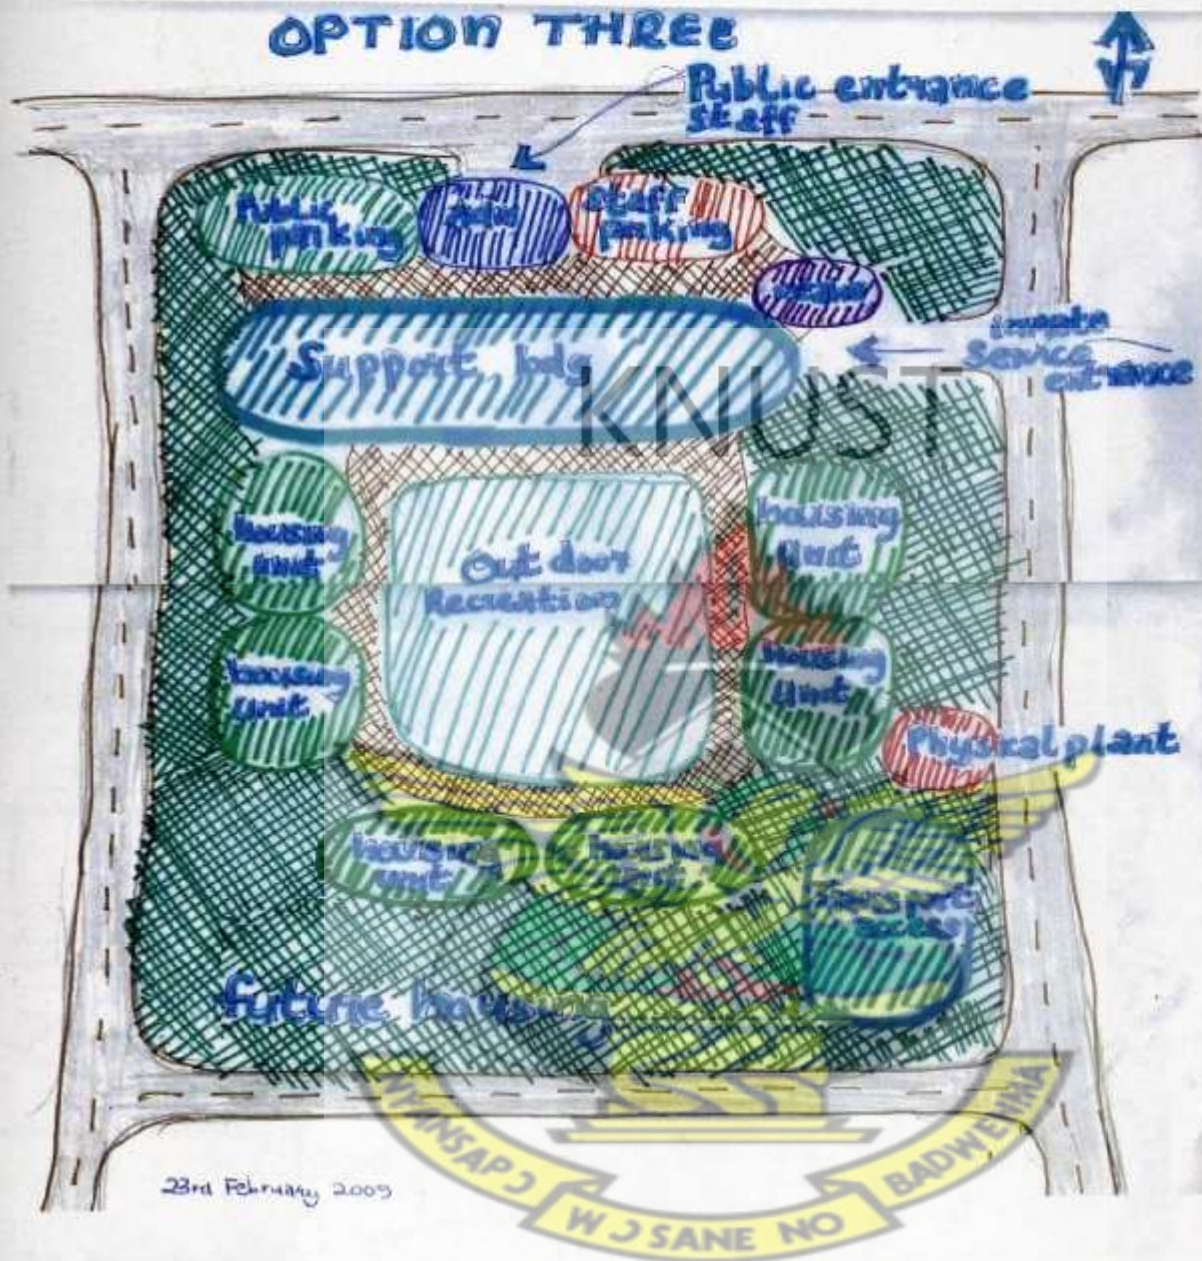 OPTION THREE
Public entrance
staff
Public
parking
staff
parking
inmate
service
entrance
Support bdg
KNUST
housing
unit
housing
unit
Out door
Recreation
housing
unit
housing
unit
Physical plant
housing
unit
housing
unit
Transport
access
future housing
23rd February 2009
NYANSAPƆ
WƆSANE NO
BADWEMMA